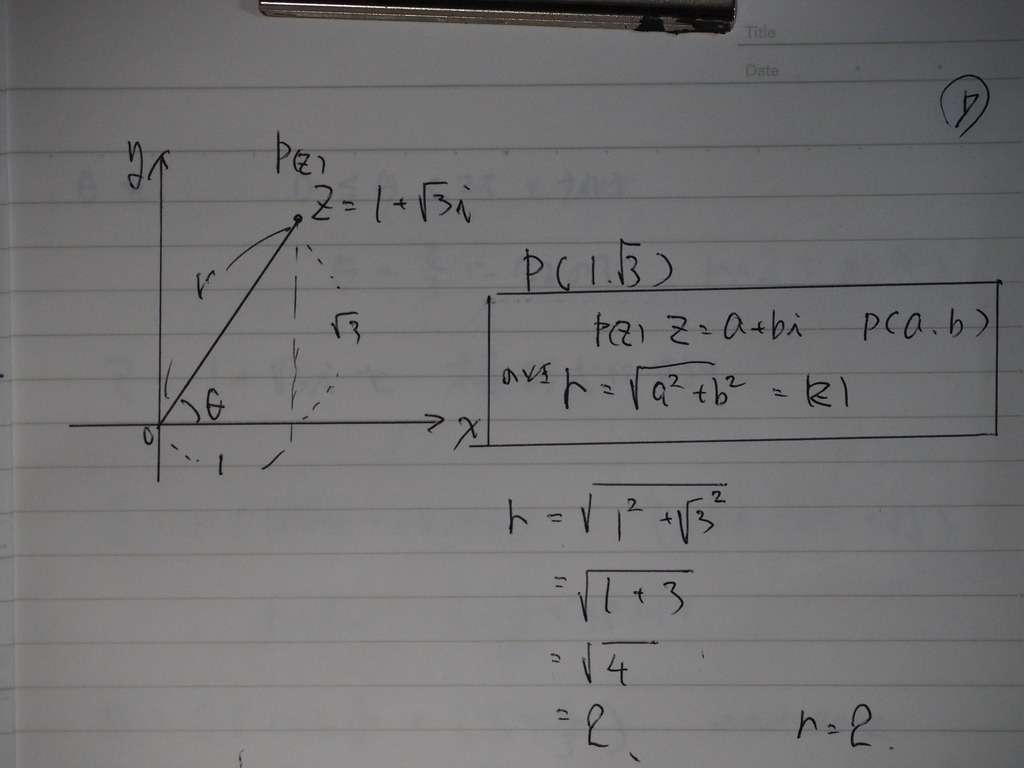 Title
Date
y
P(z)
z = 1 + √3 i
r
√3
θ
0
x
1
P(1.√3)
P(z) z = a + bi P(a.b)
のとき r = √a² + b² = |z|
r = √1² + √3²
= √1 + 3
= √4
= 2
r = 2.